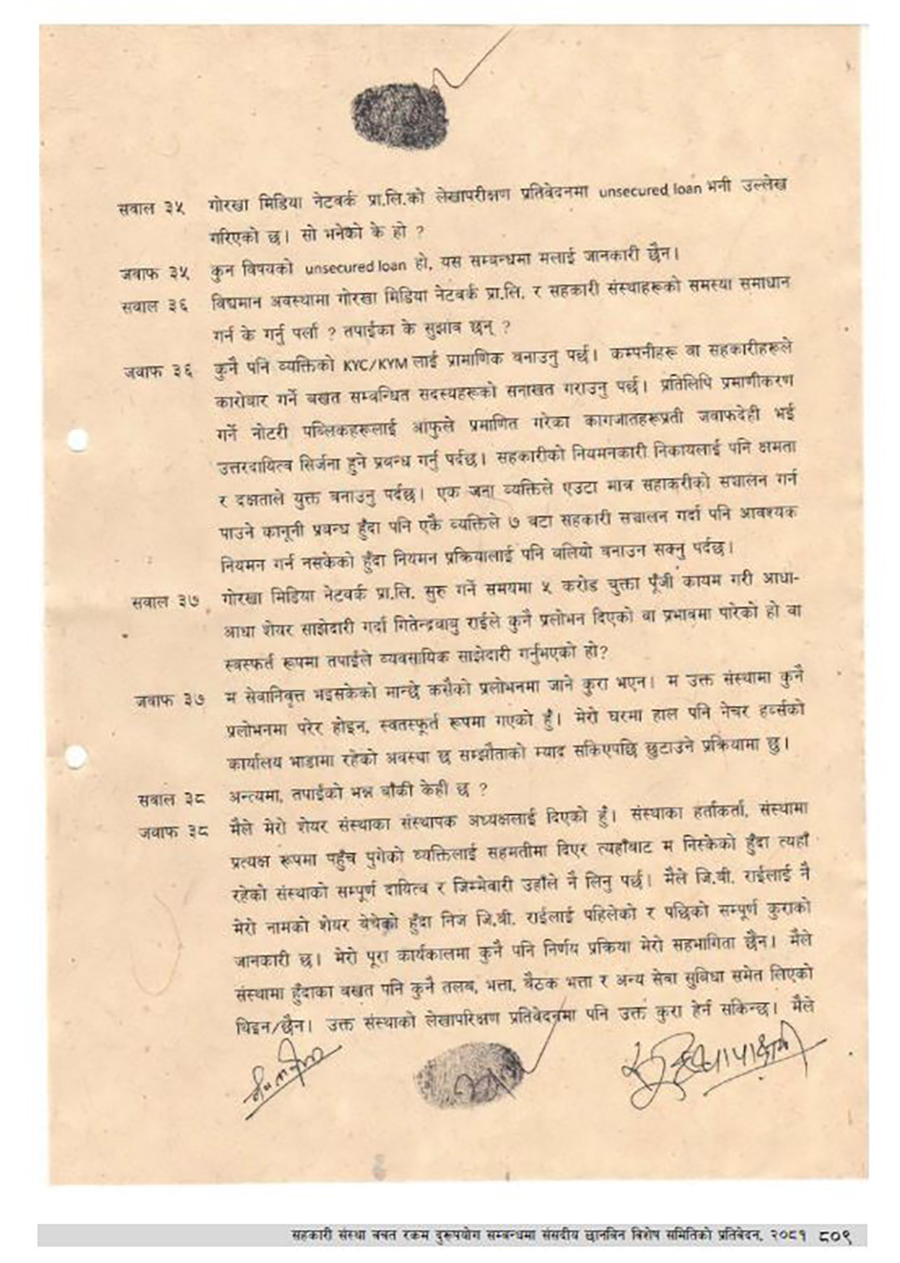 सवाल ३५ गोरखा मिडिया नेटवर्क प्रा.लि.को लेखापरीक्षण प्रतिवेदनमा unsecured loan भनी उल्लेख
गरिएको छ। सो भनेको के हो ?
जवाफ ३५ कुन विषयको unsecured loan हो, यस सम्बन्धमा मलाई जानकारी छैन।
सवाल ३६ विद्यमान अवस्थामा गोरखा मिडिया नेटवर्क प्रा.लि. र सहकारी संस्थाहरूको समस्या समाधान
गर्न के गर्नु पर्ला ? तपाईका के सुझाव छन् ?
जवाफ ३६ कुनै पनि व्यक्तिको KYC/KYM लाई प्रामाणिक बनाउनु पर्छ। कम्पनीहरू वा सहकारीहरूले
कारोबार गर्ने बखत सम्बन्धित सदस्यहरूको सनाखत गराउनु पर्छ। प्रतिलिपि प्रमाणीकरण
गर्ने नोटरी पब्लिकहरूलाई आफुले प्रमाणित गरेका कागजातहरूप्रती जवाफदेही भई
उत्तरदायित्व सिर्जना हुने प्रबन्ध गर्नु पर्दछ। सहकारीको नियमनकारी निकायलाई पनि क्षमता
र दक्षताले युक्त बनाउनु पर्दछ। एक जना व्यक्तिले एउटा मात्र सहाकरीको सञ्चालन गर्न
पाउने कानूनी प्रबन्ध हुँदा पनि एकै व्यक्तिले ७ वटा सहकारी सञ्चालन गर्दा पनि आवश्यक
नियमन गर्न नसकेको हुँदा नियमन प्रक्रियालाई पनि बलियो बनाउन सक्नु पर्दछ।
सवाल ३७ गोरखा मिडिया नेटवर्क प्रा.लि. सुरु गर्ने समयमा ५ करोड चुक्ता पूँजी कायम गरी आधा-
आधा शेयर साझेदारी गर्दा गितेन्द्रवाबु राईले कुनै प्रलोभन दिएको वा प्रभावमा पारेको हो वा
स्वस्फर्त रूपमा तपाईले व्यवसायिक साझेदारी गर्नुभएको हो?
जवाफ ३७ म सेवानिवृत्त भइसकेको मान्छे कसैको प्रलोभनमा जाने कुरा भएन। म उक्त संस्थामा कुनै
प्रलोभनमा परेर होइन, स्वतस्फूर्त रूपमा गएको हुँ। मेरो घरमा हाल पनि नेचर हर्ब्सको
कार्यालय भाडामा रहेको अवस्था छ सम्झौताको म्याद सकिएपछि छुटाउने प्रक्रियामा छु।
सवाल ३८ अन्त्यमा, तपाईको भन्न बाँकी केही छ ?
जवाफ ३८ मैले मेरो शेयर संस्थाका संस्थापक अध्यक्षलाई दिएको हुँ। संस्थाका हर्ताकर्ता, संस्थामा
प्रत्यक्ष रूपमा पहुँच पुगेको व्यक्तिलाई सहमतीमा दिएर त्यहाँबाट म निस्केको हुँदा त्यहाँ
रहेको संस्थाको सम्पूर्ण दायित्व र जिम्मेवारी उहाँले नै लिनु पर्छ। मैले जि.बी. राईलाई नै
मेरो नामको शेयर बेचेको हुँदा निज जि.बी. राईलाई पहिलेको र पछिको सम्पूर्ण कुराको
जानकारी छ। मेरो पूरा कार्यकालमा कुनै पनि निर्णय प्रक्रिया मेरो सहभागिता छैन। मैले
संस्थामा हुँदाका बखत पनि कुनै तलब, भत्ता, बैठक भत्ता र अन्य सेवा सुबिधा समेत लिएको
थिइन/छैन। उक्त संस्थाको लेखापरिक्षण प्रतिवेदनमा पनि उक्त कुरा हेर्न सकिन्छ। मैले
सहकारी संस्था बचत रकम दुरूपयोग सम्बन्धमा संसदीय छानबिन विशेष समितिको प्रतिवेदन, २०८१ ८०९